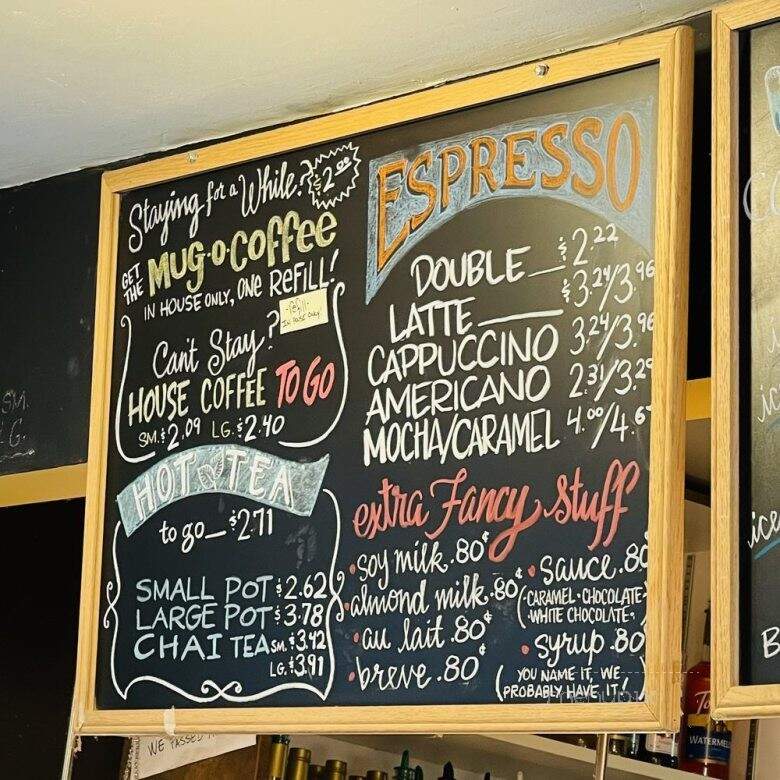 Staying for a While? $2.00
GET THE MUG·O·COFFEE
IN HOUSE ONLY, ONE REFILL!
-Refill-
IN HOUSE ONLY
Can't Stay?
HOUSE COFFEE TO GO
SM. $2.09 LG. $2.40
HOT TEA
to go_ $2.71
SMALL POT $2.62
LARGE POT $3.78
CHAI TEA SM. $3.42
LG. $3.91
ESPRESSO
DOUBLE_ $2.22
LATTE_ $3.24/3.96
CAPPUCCINO 3.24/3.96
AMERICANO 2.31/3.29
MOCHA/CARAMEL 4.00/4.67
extra Fancy stuff
•soy milk .80¢
•almond milk .80¢
•au lait .80¢
•breve .80¢
•sauce .80
(·CARAMEL·CHOCOLATE·
WHITE CHOCOLATE·)
•syrup .80
(YOU NAME IT, WE
PROBABLY HAVE IT!)
SM.
LG.
ice
B
WE PASSED
WATERME